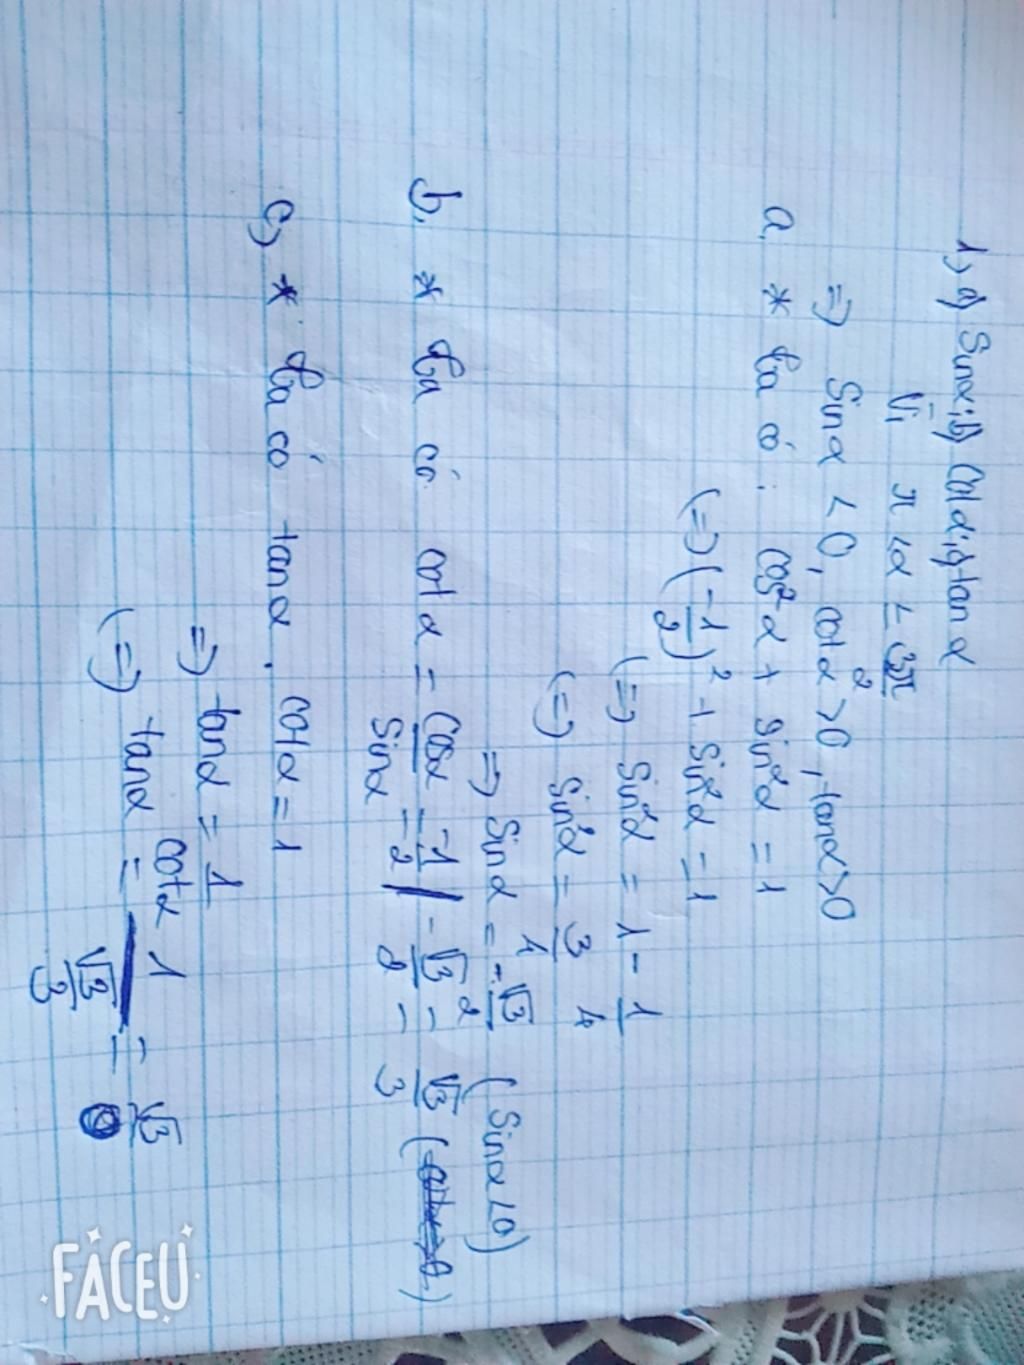 1, a) Sinα; b) Cotα; c) tanα
Vì π < α < 3π/2
=> Sin α < 0, cot α > 0, tanα > 0
a, * Ta có: cos²α + sin²α = 1
(=) (-1/2)² + Sin²α = 1
(=) Sin²α = 1 - 1/4
(=) Sin²α = 3/4
=> Sin α = -√3/2 (Sinα < 0)
b, * Ta có cot α = Cosα/Sinα = -1/2 / -√3/2 = √3/3
c) * Ta có tanα . cotα = 1
=> tanα = 1/cotα
(=) tanα = 1/(√3/3) = √3
FACEU